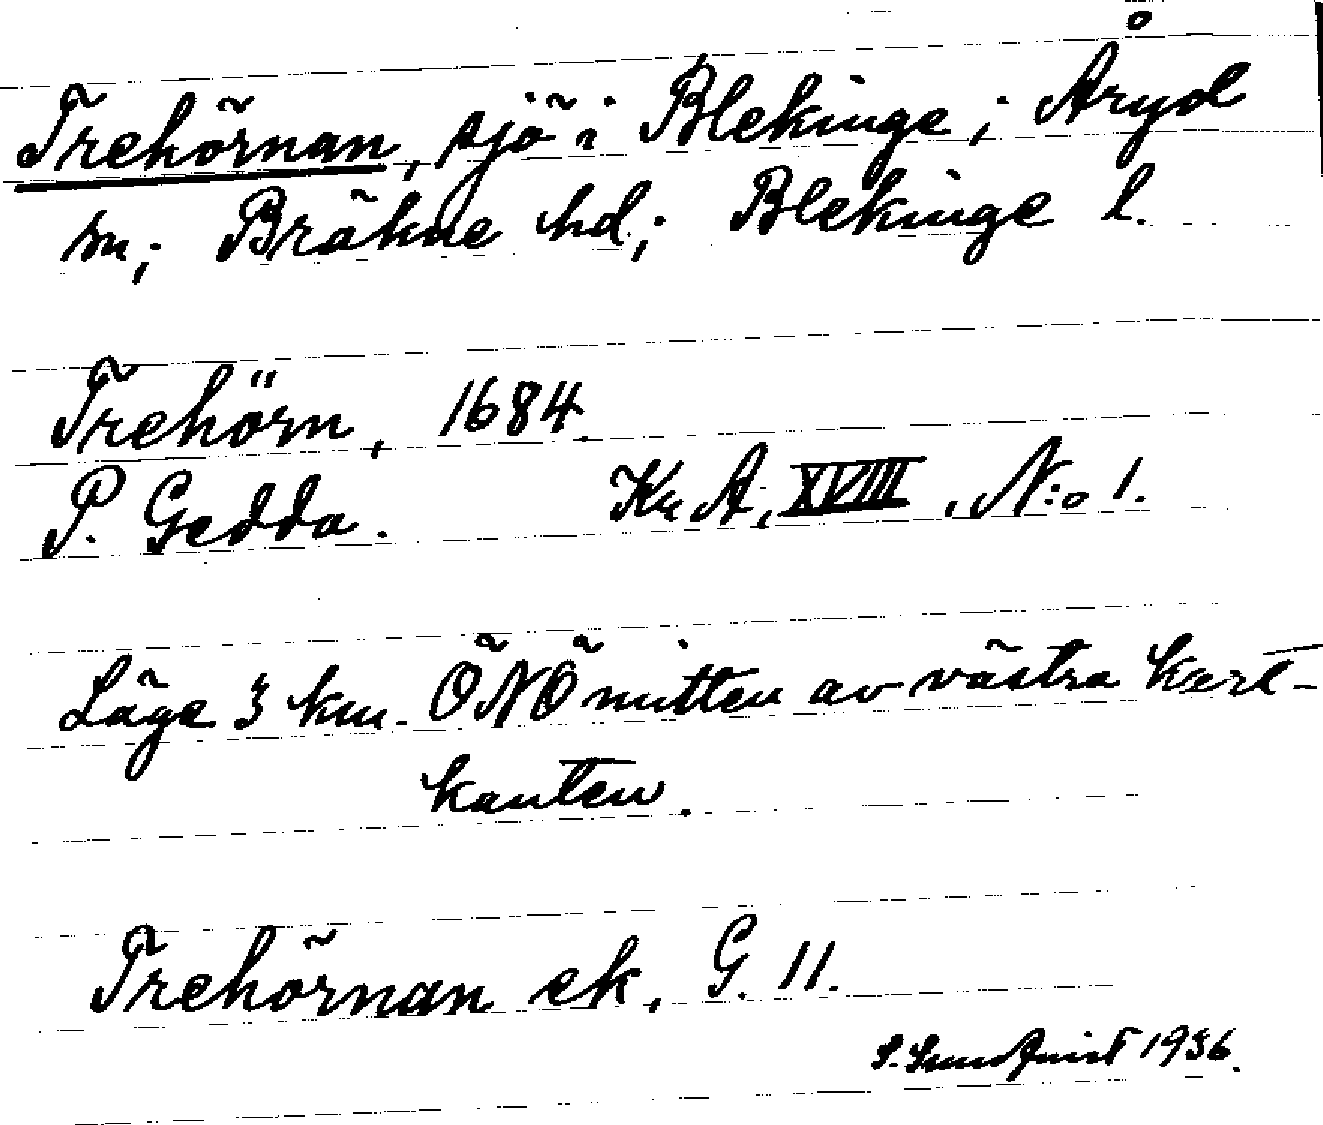 Trehörnan, sjö i Blekinge; Åryd
sn; Bräkne hd; Blekinge l.
Trehörn, 1684.
P. Gedda. Kr A, XVIII, N:o 1.
Läge 3 km. ÖNÖ mitten av västra kart-
kanten.
Trehörnan ek. G. 11.
S. Sundquist 1936.